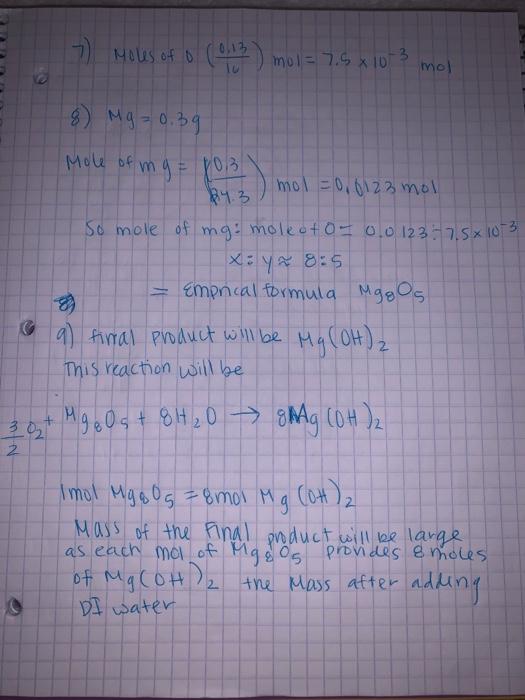 7) Moles of O (0.13/16) mol = 7.5 x 10⁻³ mol
8) Mg = 0.3g
Mole of mg = (0.3/24.3) mol = 0.0123 mol
So mole of mg: mole of O = 0.0123 ÷ 7.5 x 10⁻³
x : y ≈ 8:5
= Emprical formula Mg₈O₅
9) final product will be Mg(OH)₂
This reaction will be
3/2 O₂ + Mg₈O₅ + 8H₂O → 8Mg(OH)₂
1mol Mg₈O₅ = 8mol Mg(OH)₂
Mass of the Final product will be large
as each mol of Mg₈O₅ provides 8 moles
of Mg(OH)₂ the Mass after adding
DI water